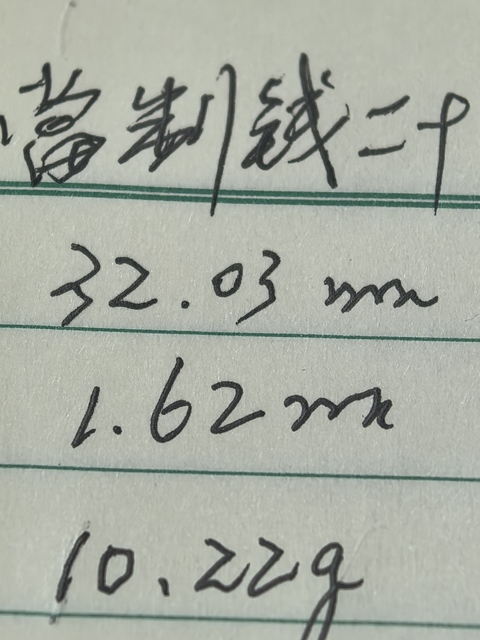 當制钱二十
32.03 mm
1.62 mm
10.22g